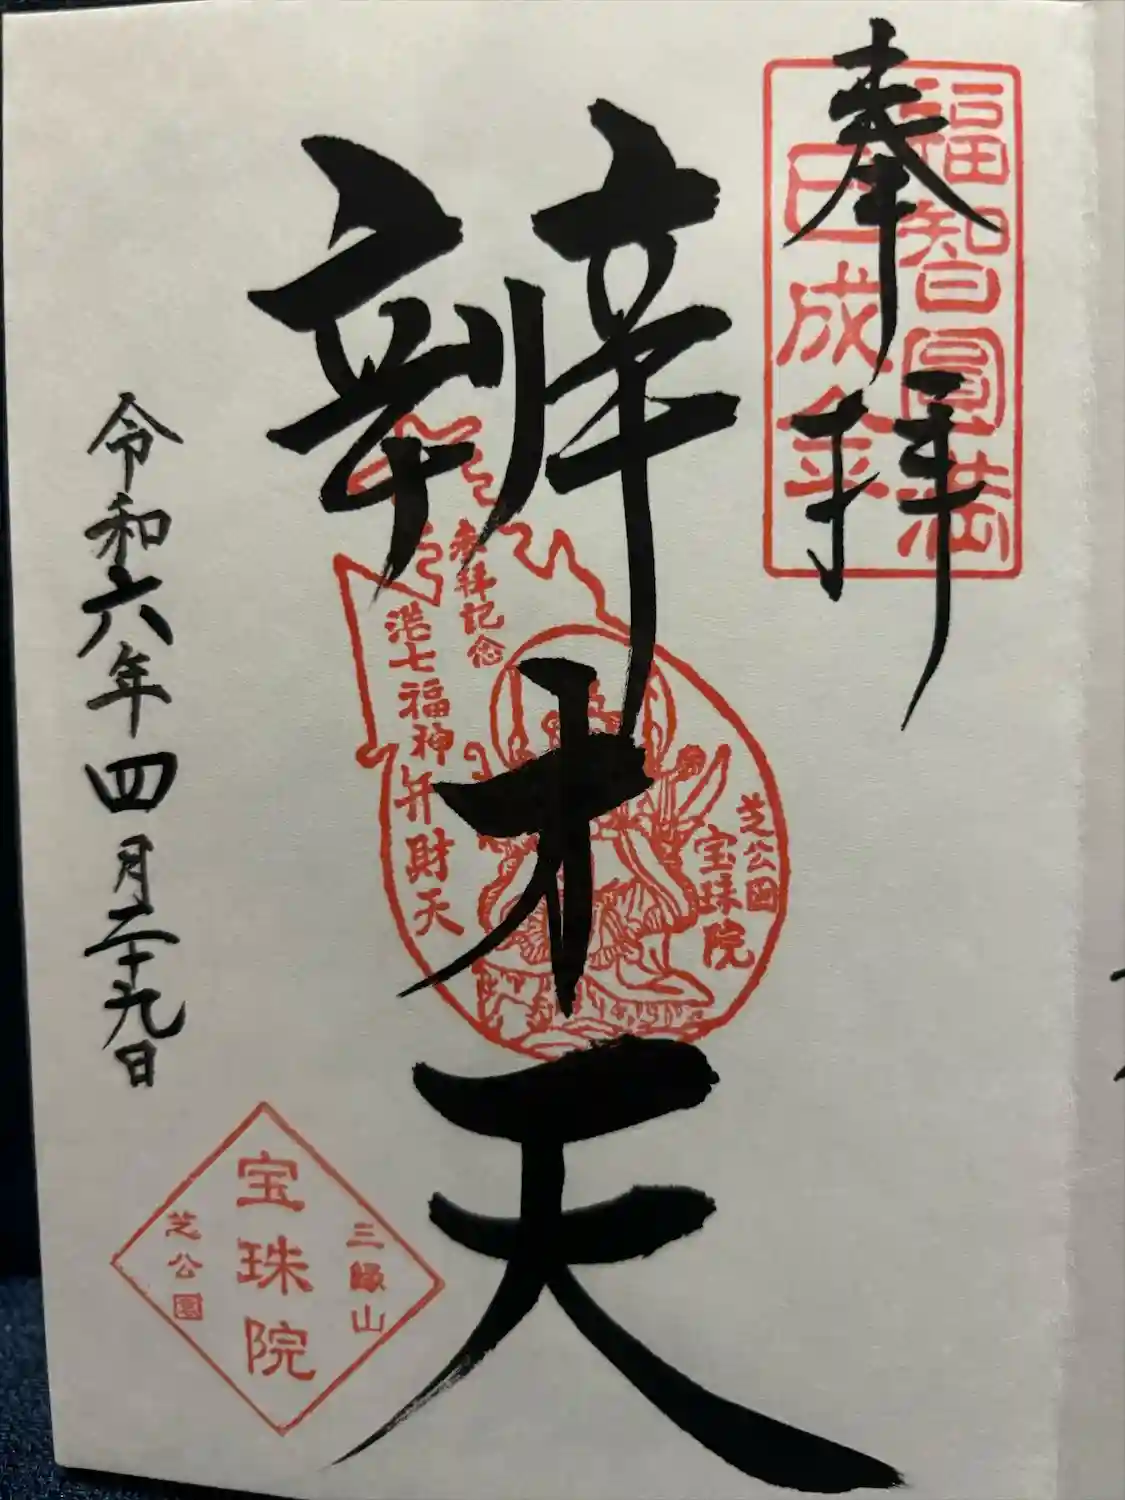 奉拝
福智圓満
巳成金
辨才天
参拝記念
港七福神
弁財天
芝公園
宝珠院
令和六年四月二十九日
三縁山
宝珠院
芝公園